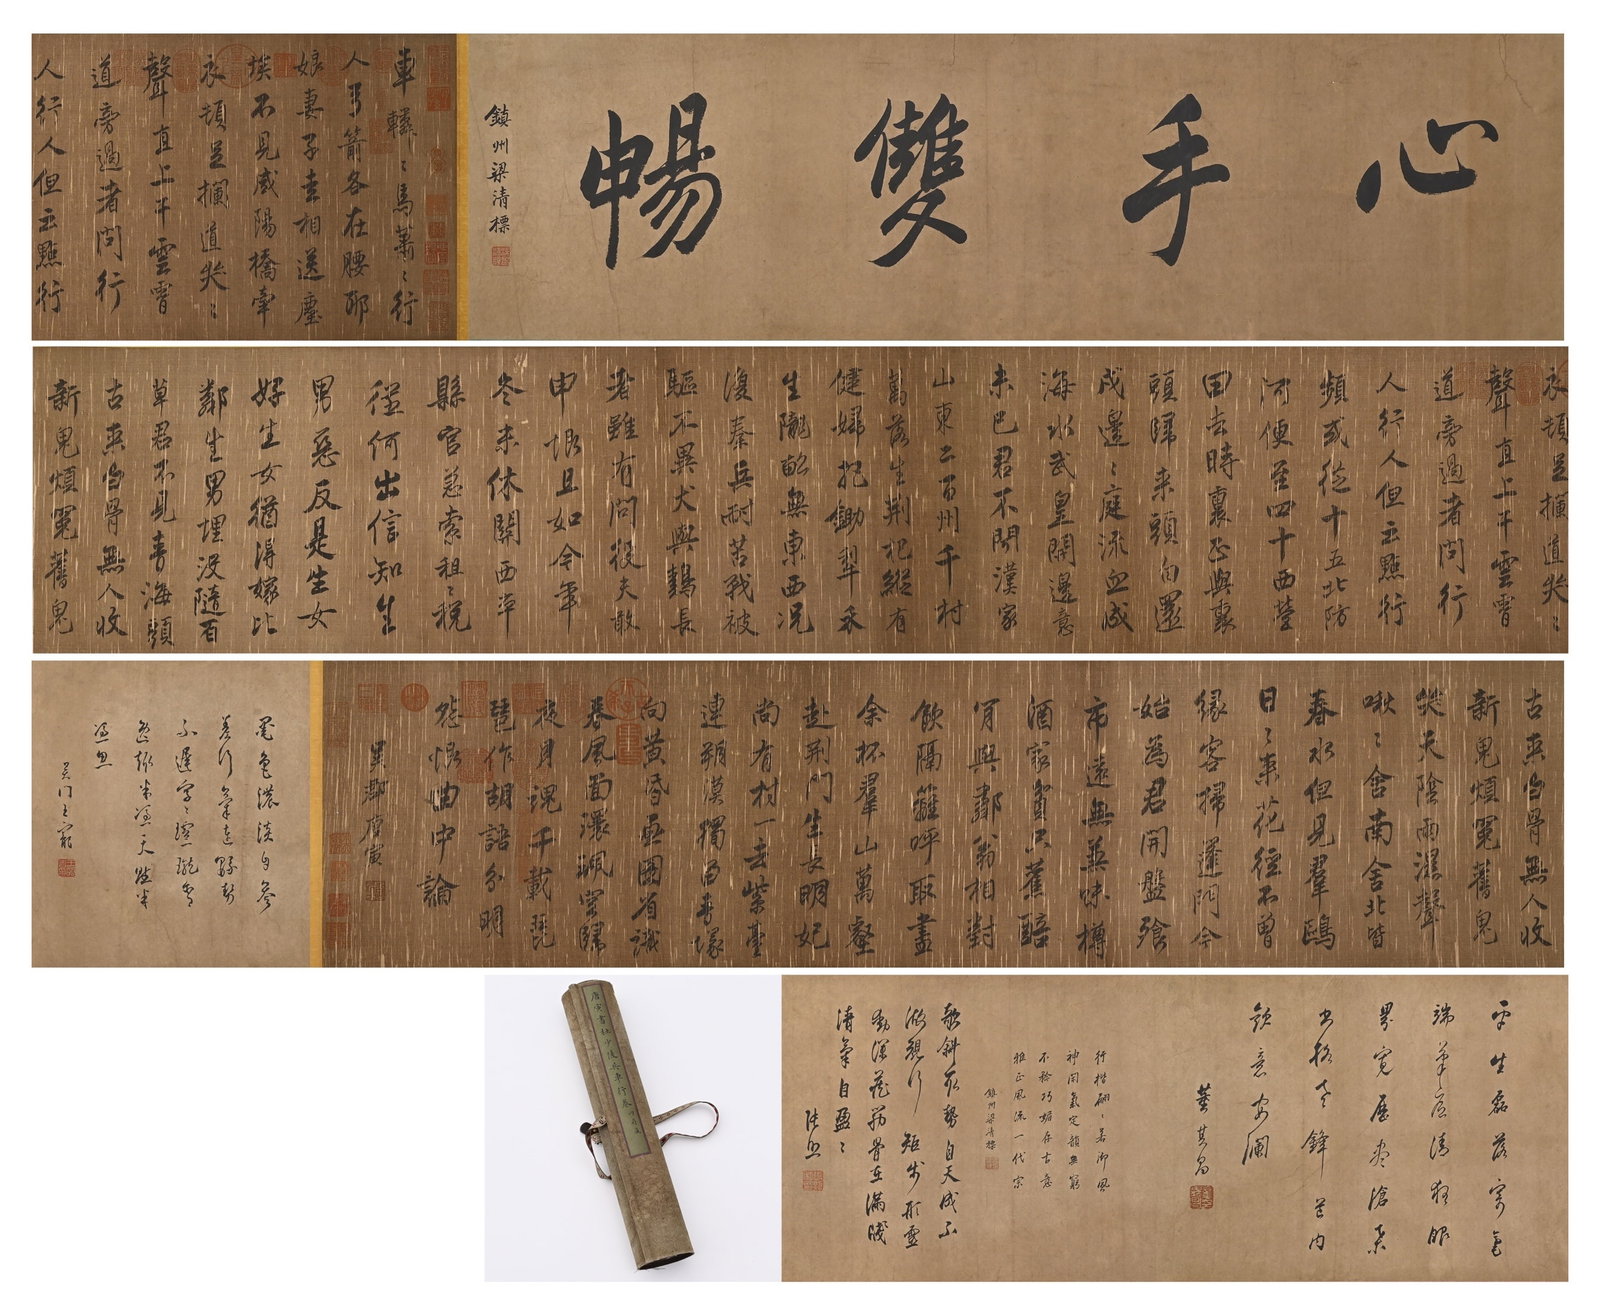 心手雙暢
鎮州梁清標
車轔〻馬蕭〻行
人弓箭各在腰耶
娘妻子走相送塵
埃不見咸陽橋牽
衣頓足攔道哭〻
聲直上干雲霄
道旁過者問行
人行人但云點行
衣頓足攔道哭〻
聲直上干雲霄
道旁過者問行
人行人但云點行
頻或從十五北防
河便至四十西營
田去時裏正與裹
頭歸來頭白還
戍邊〻庭流血成
海水武皇開邊意
未已君不聞漢家
山東二百州千村
萬落生荆杞縱有
健婦把鋤犁禾
生隴畝無東西況
復秦兵耐苦戰被
驅不異犬與鷄長
者雖有問役夫敢
申恨且如今年
冬未休關西卒
縣官急索租〻稅
從何出信知生
男惡反是生女
好生女猶得嫁比
鄰生男埋沒隨百
草君不見青海頭
古來白骨無人收
新鬼煩冤舊鬼
古來白骨無人收
新鬼煩冤舊鬼
哭天陰雨濕聲
啾〻舍南舍北皆
春水但見羣鷗
日〻來花徑不曾
緣客掃蓬門今
始為君開盤飧
市遠無兼味樽
酒家貧只舊醅
肯與鄰翁相對
飲隔籬呼取盡
餘杯羣山萬壑
赴荆門生長明妃
尚有村一去紫臺
連朔漠獨留青塚
向黃昏畫圖省識
春風面瓌珮空歸
夜月魂千載琵
琶作胡語分明
怨恨曲中論
吳郡唐寅
墨色濃淡自
不遲字〻
吳門王寵
平生磊落寄毫
端筆底清狂眼
界寬歷盡滄桑
書格老鋒芒内
斂意安瀾
董其昌
行楷翩〻若御風
神閒氣定韻無窮
不矜巧媚存古意
雅正風流一代宗
鎮州梁清標
欹斜取勢自天成不
激規行矩步形靈
動渾茂筋骨在滿牋
清氣自盈〻
唐寅書杜少陵兵車行卷